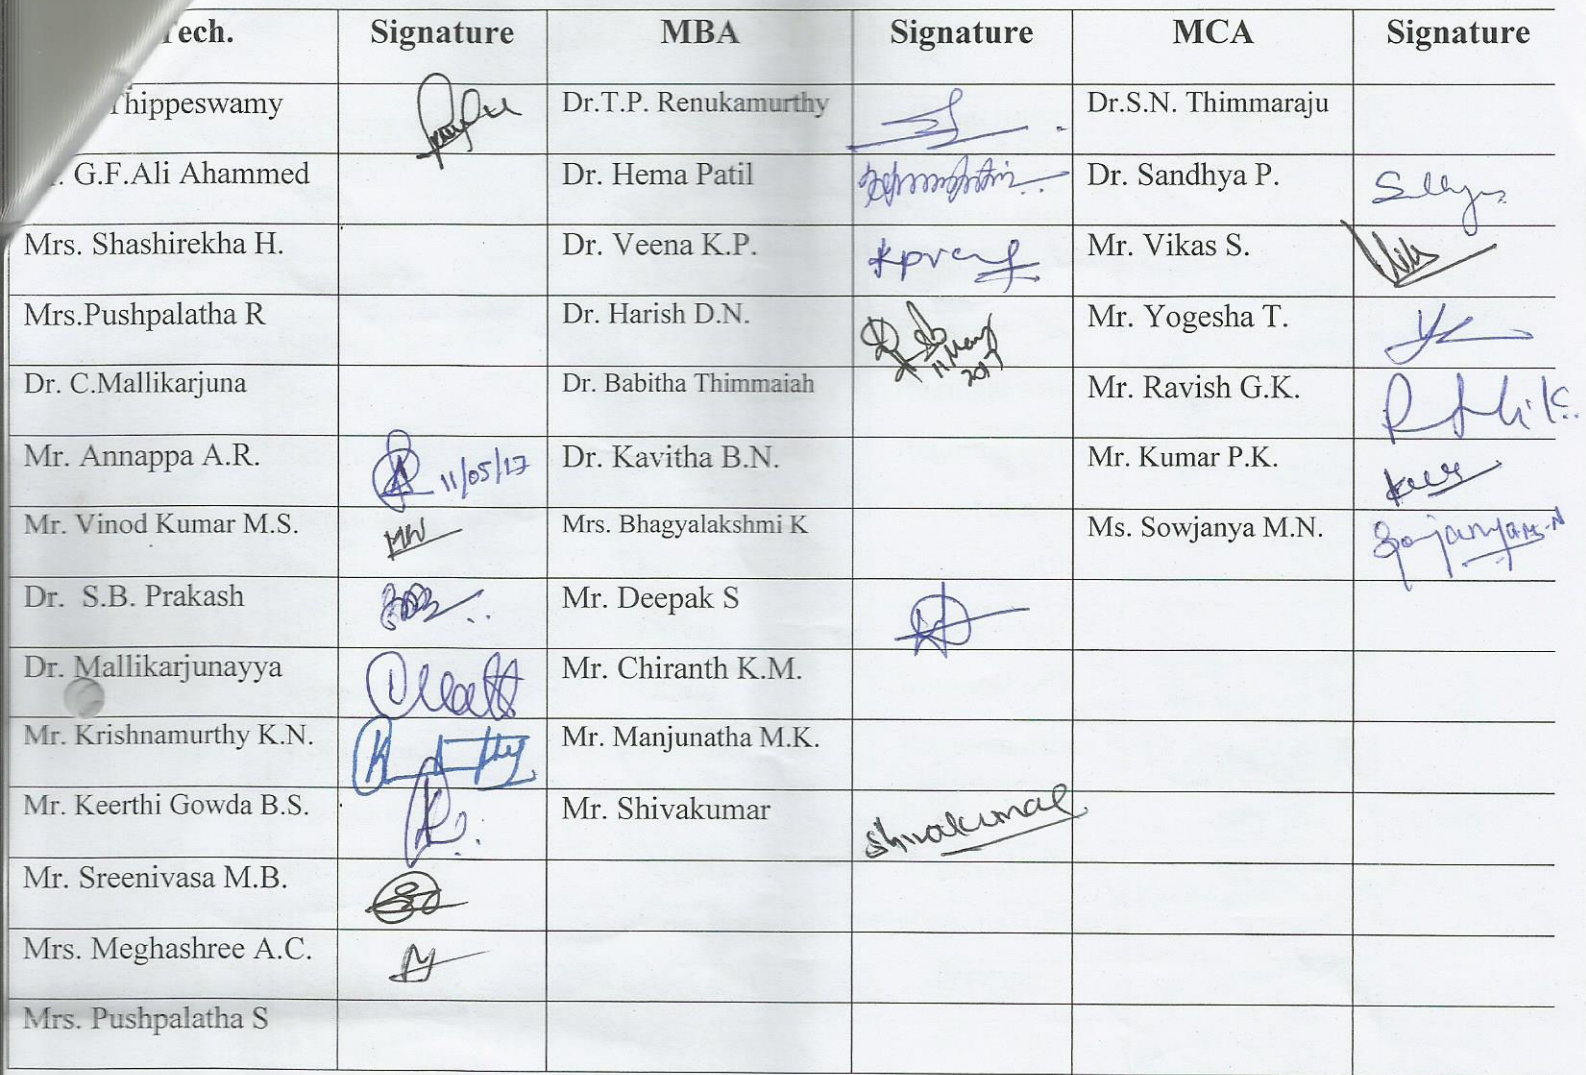 Tech. Signature MBA Signature MCA Signature
Thippeswamy Dr.T.P. Renukamurthy Dr.S.N. Thimmaraju
G.F.Ali Ahammed Dr. Hema Patil Dr. Sandhya P.
Mrs. Shashirekha H. Dr. Veena K.P. Mr. Vikas S.
Mrs.Pushpalatha R Dr. Harish D.N. Mr. Yogesha T.
Dr. C.Mallikarjuna Dr. Babitha Thimmaiah Mr. Ravish G.K.
Mr. Annappa A.R. 11/05/17 Dr. Kavitha B.N. Mr. Kumar P.K.
Mr. Vinod Kumar M.S. Mrs. Bhagyalakshmi K Ms. Sowjanya M.N.
Dr. S.B. Prakash Mr. Deepak S
Dr. Mallikarjunayya Mr. Chiranth K.M.
Mr. Krishnamurthy K.N. Mr. Manjunatha M.K.
Mr. Keerthi Gowda B.S. Mr. Shivakumar Shivakumar
Mr. Sreenivasa M.B.
Mrs. Meghashree A.C.
Mrs. Pushpalatha S